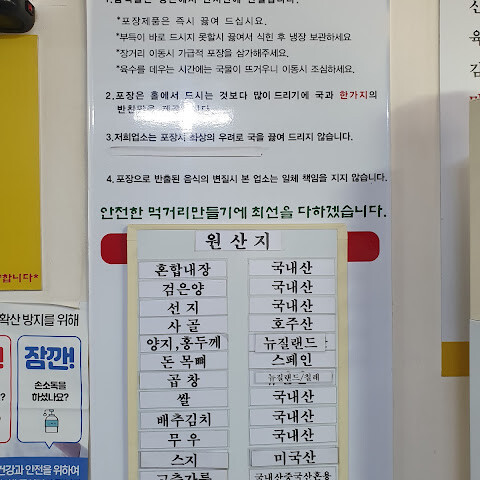 *포장제품은 즉시 끓여 드십시요.
*부득이 바로 드시지 못할시 끓여서 식힌 후 냉장 보관하세요
*장거리 이동시 가급적 포장을 삼가해주세요.
*육수를 데우는 시간에는 국물이 뜨거우니 이동시 조심하세요.
2.포장은 홀에서 드시는 것보다 많이 드리기에 국과 한가지의
3.저희업소는 포장시 화상의 우려로 국을 끓여 드리지 않습니다.
4.포장으로 반출된 음식의 변질시 본 업소는 일체 책임을 지지 않습니다.
안전한 먹거리만들기에 최선을 다하겠습니다.
원산지
혼합내장 국내산
검은양 국내산
선지 국내산
사골 호주산
양지,홍두께 뉴질랜드
돈목뼈 스페인
곱창 뉴질랜드/칠레
쌀 국내산
배추김치 국내산
무우 국내산
스지 미국산
고춧가루 국내산중국산혼용
합니다*
확산 방지를 위해
잠깐!
손소독을
하셨나요?
건강과 안전을 위하여